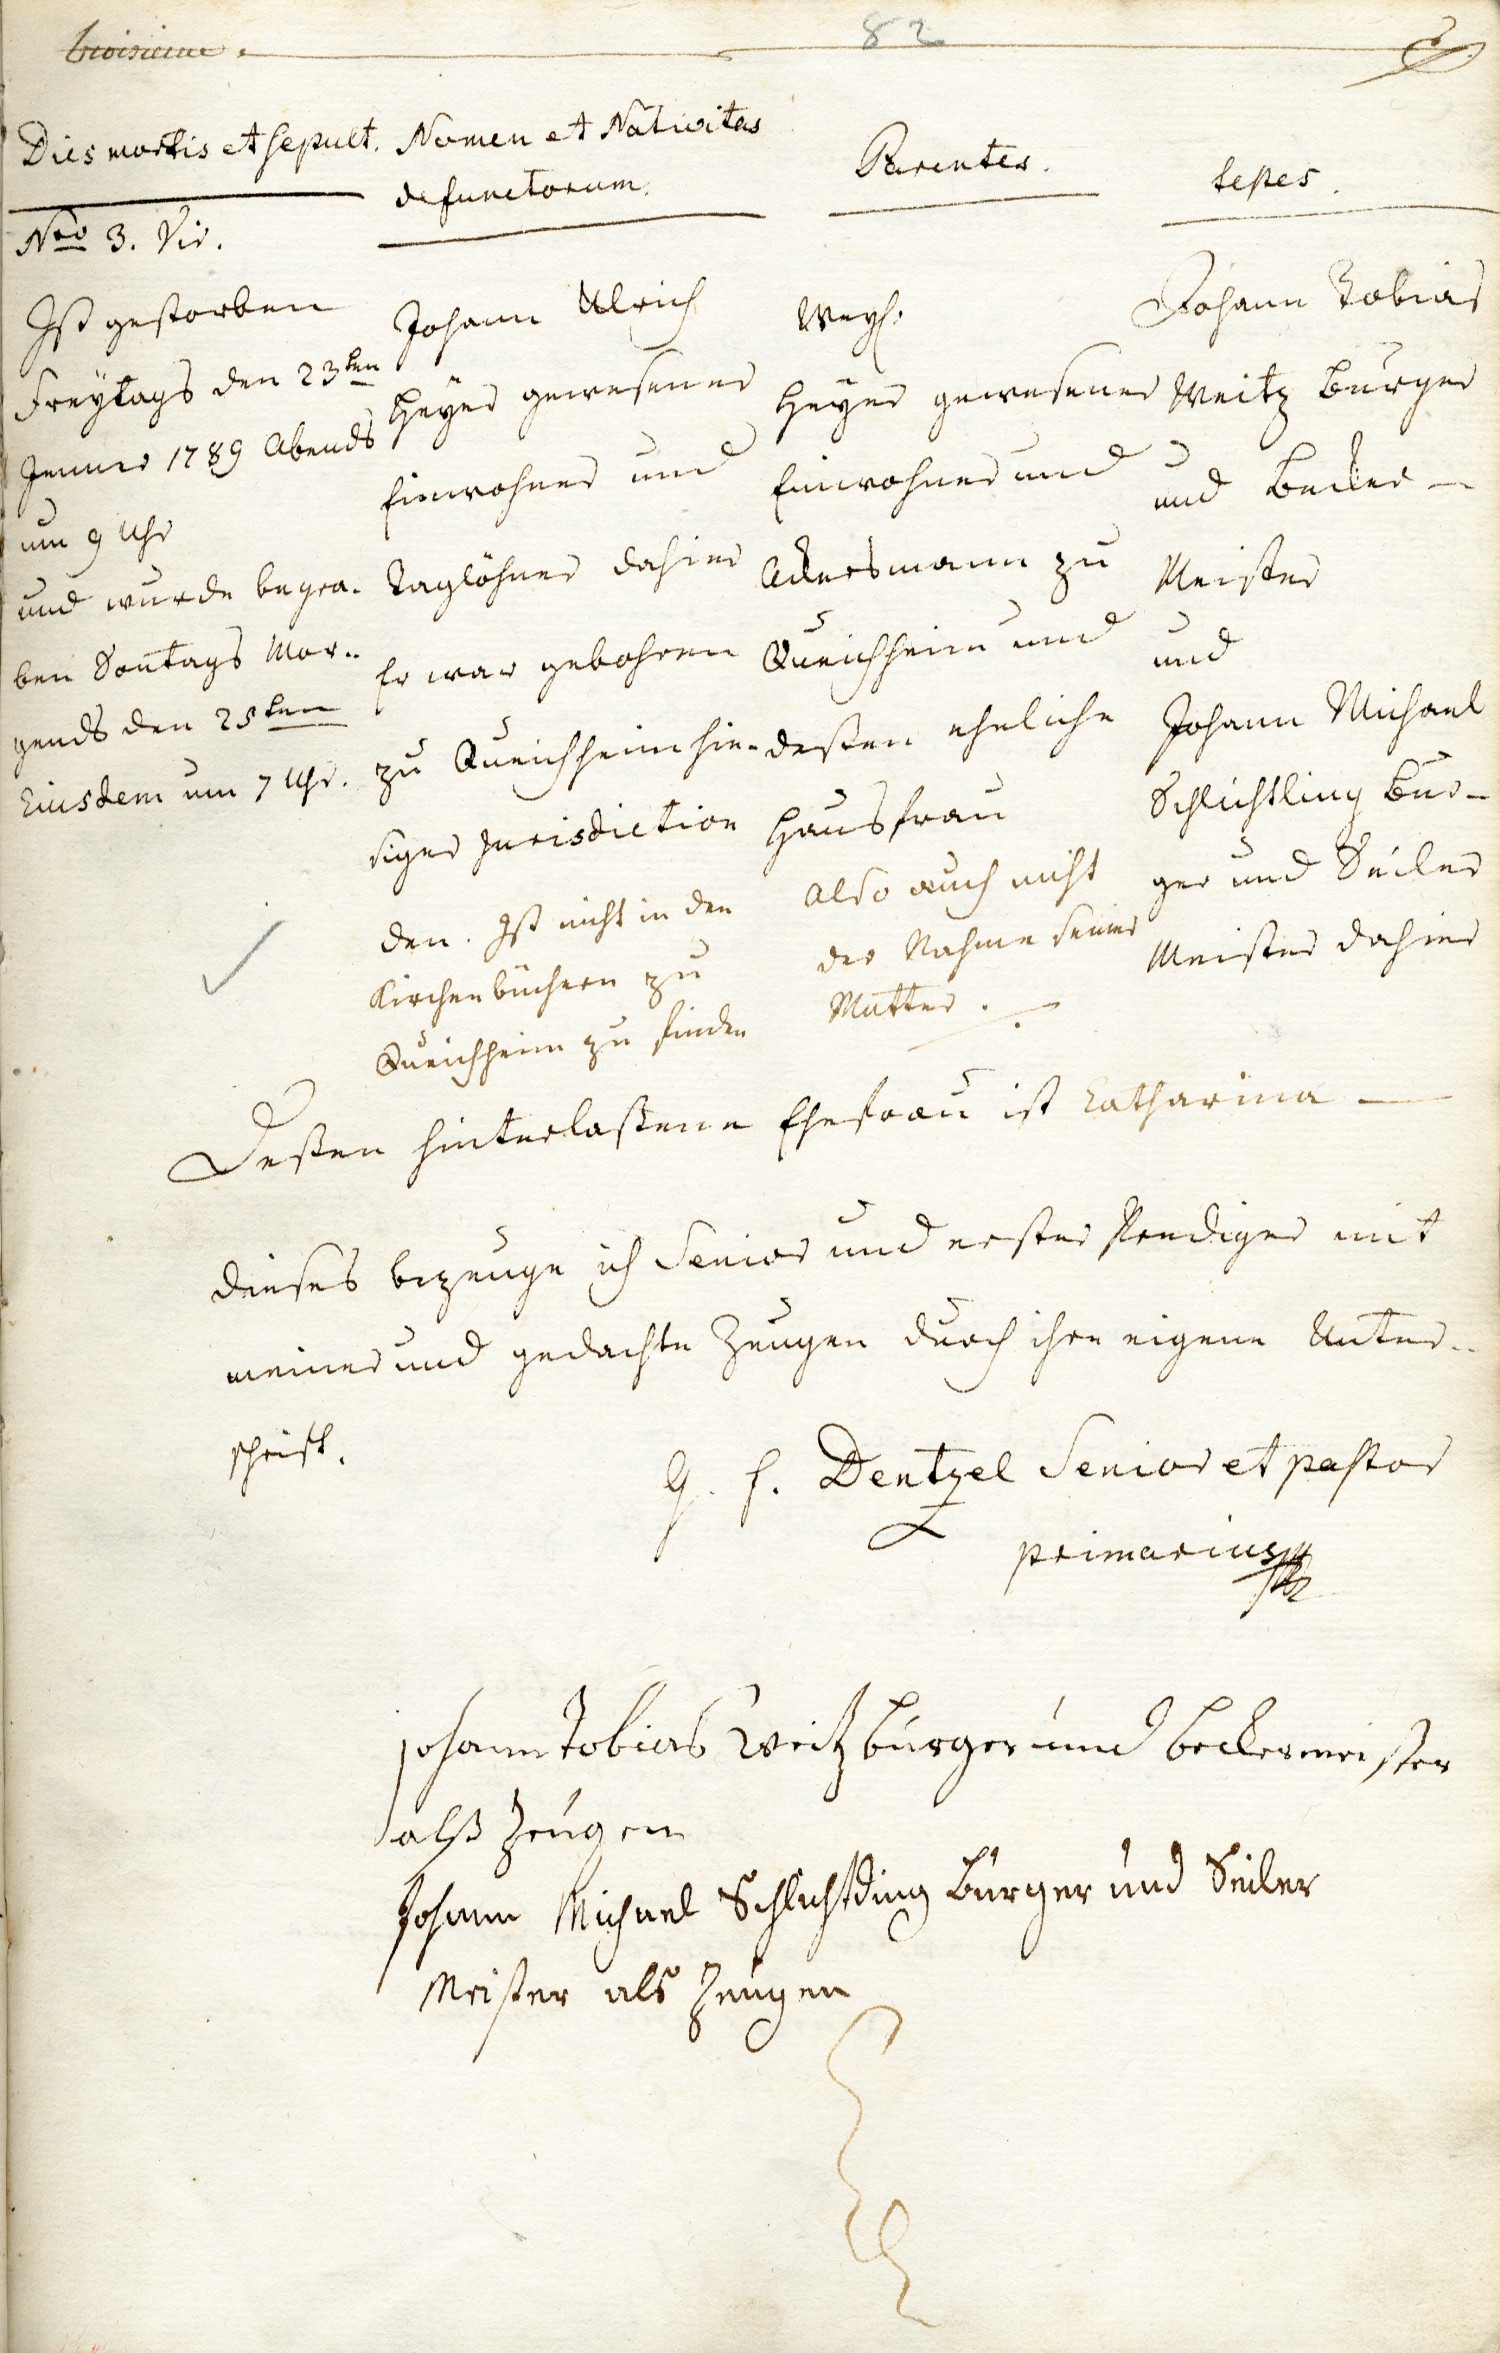 troisieme.
82
Dies mortis et sepult.
Nro 3. Vir.
Ist gestorben
Freÿtags den 23ten
Jenner 1789 Abends
um 9 Uhr
und wurde begra-
ben Sontags Mor-
gends den 25ten
Eiusdem um 7 Uhr.
Nomen et Nativitas
defunctorum.
Johann Ulrich
Heÿer gewesener
Einwohner und
Taglöhner dahier
Er war gebohren
zu Queichheim hie-
siger Jurisdiction
den. Ist nicht in den
Kirchenbüchern zu
Queichheim zu finden
Parentes.
Weyl.
Heÿer gewesener
Einwohner und
Ackersmann zu
Queichheim und
deßen eheliche
Hausfrau
Also auch nicht
der Nahme seiner
Mutter.
testes.
Johann Tobias
Weitz Burger
und Becker
Meister
und
Johann Michael
Schlichtling Bur-
ger und Seiler
Meister dahier
Deßen hinterlaßene Ehefrau ist Catharina
dieses bezeuge ich Senior und erster Prediger mit
meiner und gedachte Zeugen durch ihre eigene Unter-
schrift.
G. F. Dentzel Senior et pastor
primarius
Johann Tobias Weitz burger und beckermeister
alß Zeugen
Johann Michael Schlichtding Burger und Seiler
Meister als Zeugen